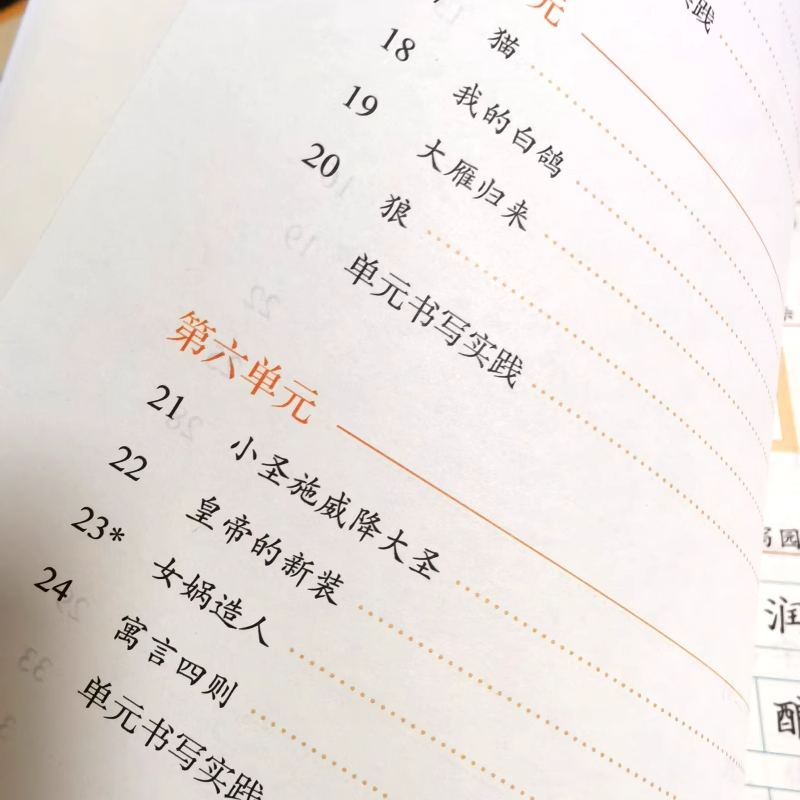 践
元
猫
18 我的白鸽
19 大雁归来
20 狼
单元书写实践
第六单元
21 小圣施威降大圣
22 皇帝的新装
23* 女娲造人
24 寓言四则
单元书写实践
园
润
酿